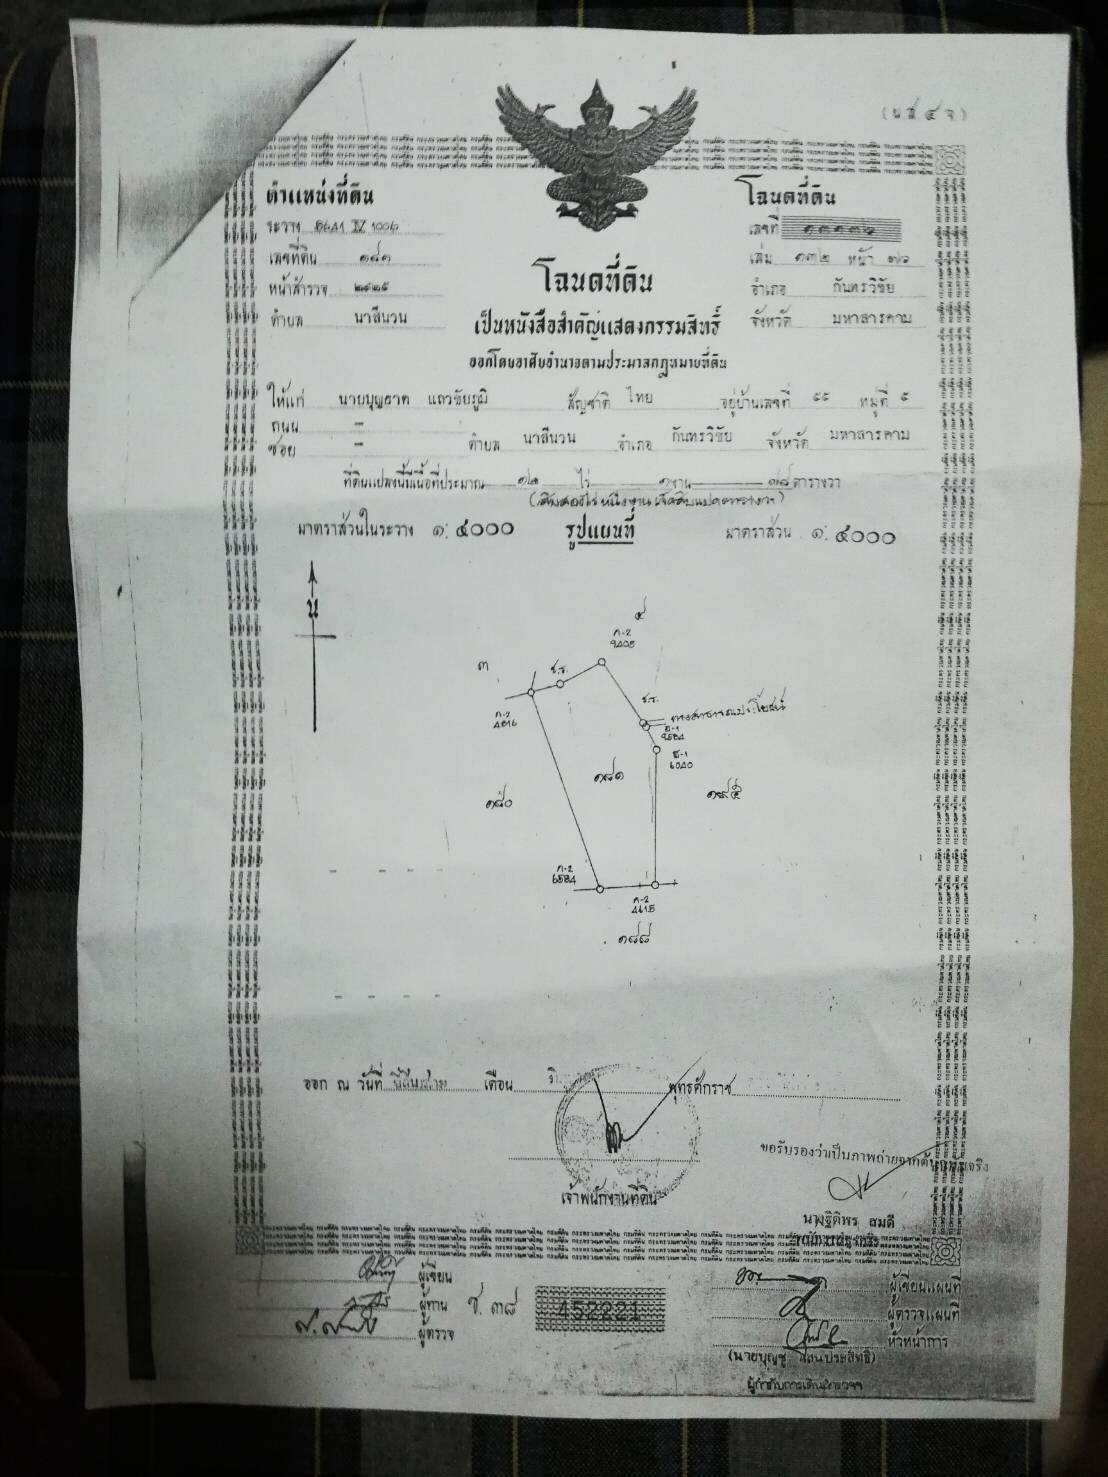 (น.ส. ๔ จ)
ตำแหน่งที่ดิน
ระวาง 5641 IV 1006
เลขที่ดิน ๑๘๑
หน้าสำรวจ ๒๙๒๕
ตำบล นาสีนวน
โฉนดที่ดิน
เลขที่
เล่ม ๑๓๒ หน้า ๓๖
อำเภอ กันทรวิชัย
จังหวัด มหาสารคาม
โฉนดที่ดิน
เป็นหนังสือสำคัญแสดงกรรมสิทธิ์
ออกโดยอาศัยอำนาจตามประมวลกฎหมายที่ดิน
ให้แก่ นายบุญธาต แถวชัยภูมิ สัญชาติ ไทย อยู่บ้านเลขที่ ๕๕ หมู่ที่ ๕
ถนน –
ซอย – ตำบล นาสีนวน อำเภอ กันทรวิชัย จังหวัด มหาสารคาม
ที่ดินแปลงนี้มีเนื้อที่ประมาณ ๑๒ ไร่ ๑ งาน ๗๘ ตารางวา
(เดิมสองไร่ หนึ่งงาน เจ็ดสิบแปดตารางวา)
มาตราส่วนในระวาง ๑: ๔๐๐๐ รูปแผนที่ มาตราส่วน ๑: ๔๐๐๐
น
๔
ค-2
9403
๓
ร.ร.
ค-2
4816
ร.ร.
ทางสาธารณประโยชน์
9584
6040
๑๘๑
๑๘๐
๑๙๕
ค-2
6584
ค-2
4615
๑๘๘
ออก ณ วันที่ ยี่สิบห้า เดือน พุทธศักราช
ขอรับรองว่าเป็นภาพถ่ายจากต้นฉบับจริง
เจ้าพนักงานที่ดิน
นางฐิติพร สมดี
ผู้เขียน
ผู้ทาน
ผู้ตรวจ
ช. ๓๘
452221
ผู้เขียนแผนที่
ผู้ตรวจแผนที่
หัวหน้าการ
(นายบุญชู แสนประสิทธิ์)
ผู้กำกับการเดินสำรวจฯ